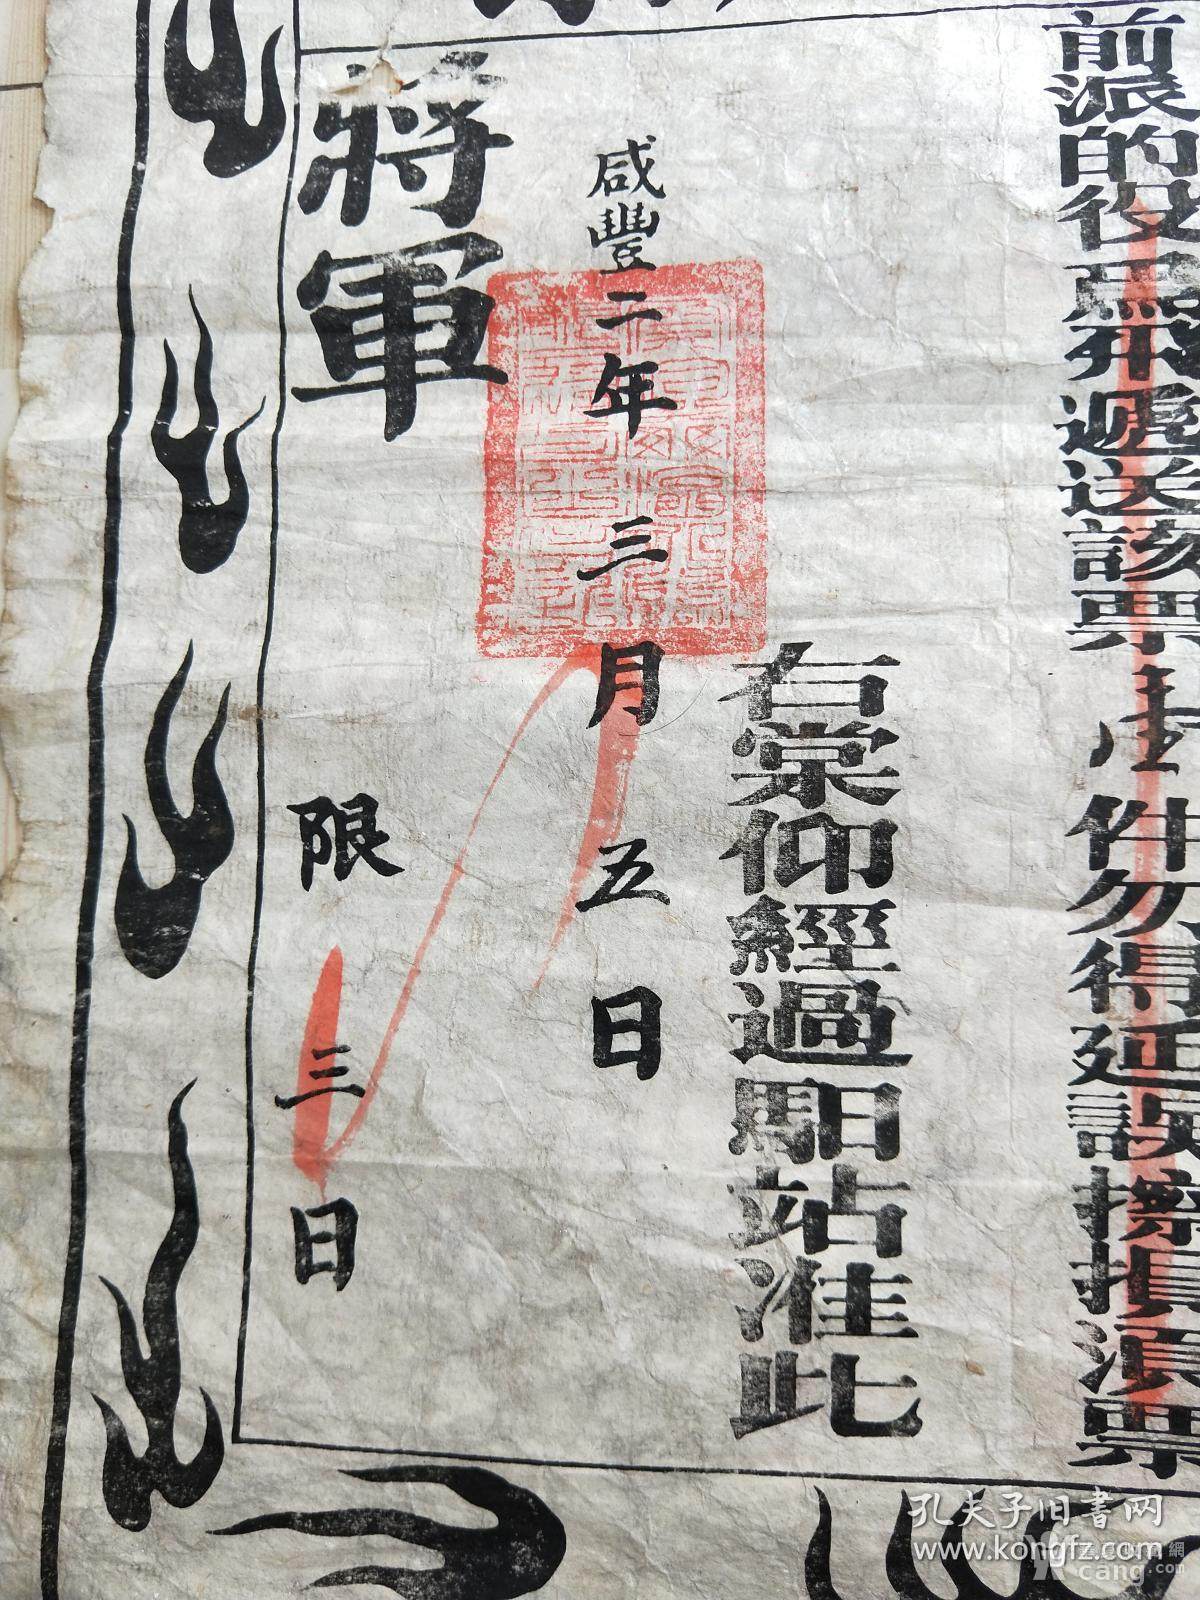 前派的役星飛遞送該票 件勿得延誤擦損湏票
右票仰經過馹站准此
咸豐二年三月五日
將軍
限三日
孔夫子旧书网
www.kongfz.com
cang.com